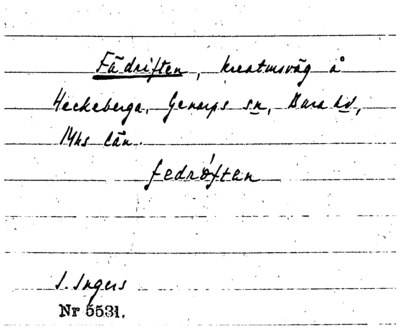 Fädriften, kreatursväg å
Heckeberga, Genarps sn, Bara hd,
Mhs län.
fedróften
I. Ingers
Nr 5531.